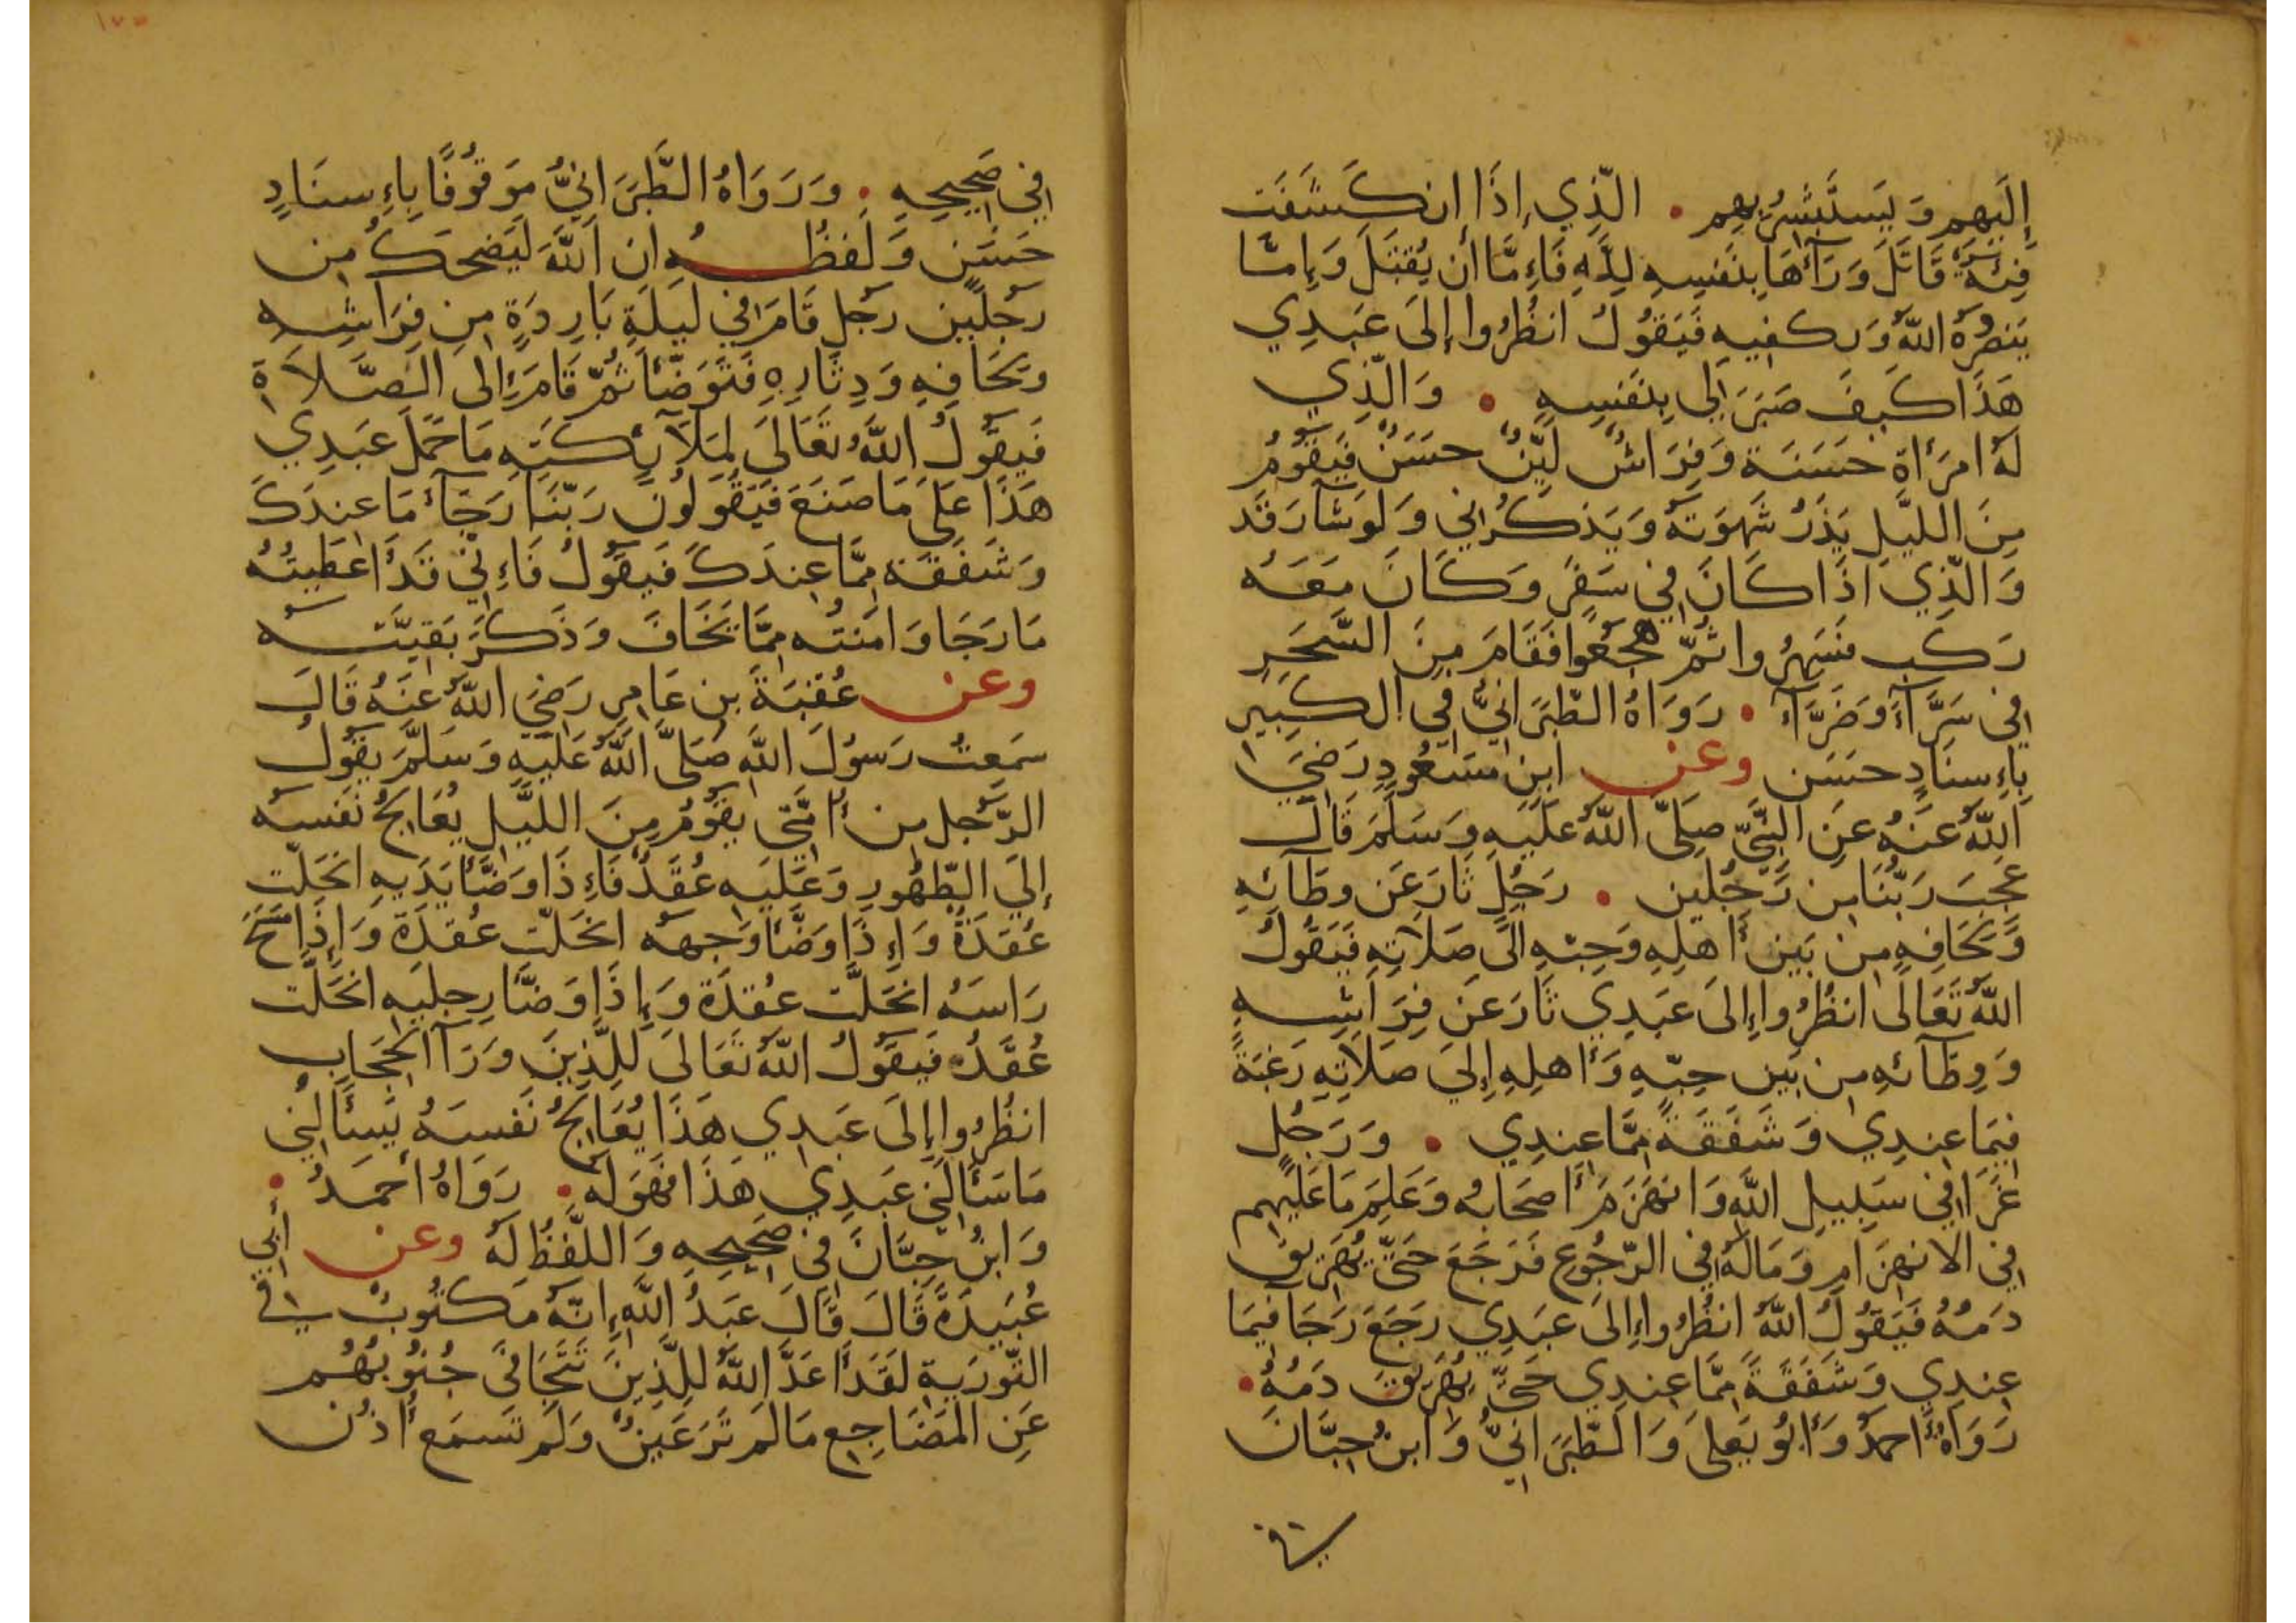 إِلَيهِم وَيَستَبشِرُ بِهِم • الَّذِي إِذَا إنكَشَفَت
فِئَةٌ قَاتَلَ وَرَآءَهَا بِنَفسِهِ لِلَّهِ فَإِمَّا أن يُقتَلَ وَإِمَّا
يَنصُرُهُ اللَّهُ وَيَكفِيهِ فَيَقُولُ انظُرُوا إِلَى عَبدِي
هَذَا كَيفَ صَبَرَ لِى بِنَفسِهِ • وَالَّذِي
لَهُ امرَأَة حَسَنَة وَفِرَاشٌ لَيِّنٌ حَسَنٌ فَيَقُومُ
مِنَ اللَّيلِ يَذَرُ شَهوَتَهُ وَيَذكُرُنِي وَلَو شَآ رَقَد
وَالَّذِي اذَا كَانَ فِي سَفَرٍ وَكَانَ مَعَهُ
رَكب فَسَهِرُوا ثُمَّ هَجَعُوا فَقَامَ مِنَ السَّحَرِ
فِي سَرَّآءَ وَضَرَّآءَ • رَوَاهُ الطَّبَرَانِيُّ فِي الكَبِيرِ
بِإِسنَادٍ حَسَن وعن ابنِ مَسعُودٍ رَضِيَ
اللَّهُ عَنهُ عَنِ النَّبِيِّ صَلَّى اللَّهُ عَلَيهِ وَسَلَّمَ قَالَ
عَجِبَ رَبُّنَا مِن رَجُلَين • رَجُلٍ ثَارَ عَن وِطَآئِهِ
وَلِحَافِهِ مِن بَينِ أَهلِهِ وَحِبِّهِ الَى صَلَاتِهِ فَيَقُولُ
اللَّهُ تَعَالَى انظُرُوا إِلَى عَبدِي ثَارَ عَن فِرَاشِهِ
وَوِطَآئِهِ مِن بَينِ حِبِّهِ وَأَهلِهِ إِلَى صَلَاتِهِ رَغبَةً
فِيمَا عِندِي وَشَفَقَةً مِمَّا عِندِي • وَرَجُلٍ
غَزَا فِي سَبِيلِ اللَّهِ وَانهَزَمَ أَصحَابُه وَعَلِمَ مَا عَلَيهِم
فِي الانهِزَامِ وَمَا لَهُ فِي الرُّجُوعِ فَرَجَعَ حَتَّى يُهَرِيقَ
دَمُهُ فَيَقُولُ اللَّهُ انظُرُوا إِلَى عَبدِي رَجَعَ رَجَآ فِيمَا
عِندِي وَشَفَقَةً مِمَّا عِندِي حَتَّى يُهَرِيقَ دَمُهُ •
رَوَاهُ أَحمَدُ وَأَبُو يَعلَى وَالطَّبَرَانِيُّ وَابنُ حِبَّانَ
فِي صَحِيحِهِ • وَرَوَاهُ الطَّبَرَانِيُّ مَوقُوفًا بِإِسنَادٍ
حَسَنٍ وَلَفظُهُ إن اللَّهَ لَيَضحَكُ مِن
رَجُلَين رَجُلٍ قَامَ فِي لَيلَةٍ بَارِدَةٍ مِن فِرَاشِهِ
وَلِحَافِهِ وَدِثَارِهِ فَتَوَضَّأَ ثُمَّ قَامَ إِلى الصَّلاَةِ
فَيَقُولُ اللَّهُ تَعَالَى لِمَلَآئِكَتِهِ مَا حَمَلَ عَبدِي
هَذَا عَلَى مَا صَنَعَ فَيَقُولُونَ رَبَّنَا رَجَآءَ مَا عِندَكَ
وَشَفَقَة مِمَّا عِندَكَ فَيَقُولُ فَإِنِّي قَد أَعطَيتُهُ
مَا رَجَا وَامَنتُه مِمَّا يَخَافُ وَذَكَرَ بَقِيَّتَهُ
وعن عُقبَةَ بنِ عَامِرٍ رَضِيَ اللَّهُ عَنهُ قَالَ
سَمِعتُ رَسُولَ اللَّهِ صَلَّى اللَّهُ عَلَيهِ وَسَلَّمَ يَقُولُ
الرَّجُل مِن أُمَّتِي يَقُومُ مِنَ اللَّيلِ يُعَالِجُ نَفسَهُ
إِلَى الطَّهُورِ وَعَلَيهِ عُقَدٌ فَإِذَا وَضَّأَ يَدَيهِ انحَلَّت
عُقدَةٌ وَإِذَا وَضَّأَ وَجهَهُ انحَلَّت عُقدَة وَإِذَا مَسَحَ
رَاسَهُ انحَلَّت عُقدَة وَإِذَا وَضَّأَ رِجلَيهِ انحَلَّت
عُقدَة فَيَقُولُ اللَّهُ تَعَالَى لِلَّذِينَ وَرَآ الحِجَابِ
انظُرُوا إِلَى عَبدِي هَذَا يُعَالِجُ نَفسَهُ يَسأَلُنِي
مَا سَأَلَنِي عَبدِي هَذَا فَهُوَ لَهُ • رَوَاهُ أَحمَدُ •
وَابنُ حِبَّانَ فِي صَحِيحِهِ وَاللَّفظُ لَهُ وعن أَبِي
عُبَيدَةَ قَالَ قَالَ عَبدُ اللَّهِ إِنَّهُ مَكتُوبٌ فِي
التَّورَيةِ لَقَد أَعَدَّ اللَّهُ لِلَّذِينَ تَتَجَافَى جُنُوبُهُم
عَنِ المَضَاجِعِ مَا لَم تَرَ عَينٌ وَلَم تَسمَع أُذُن